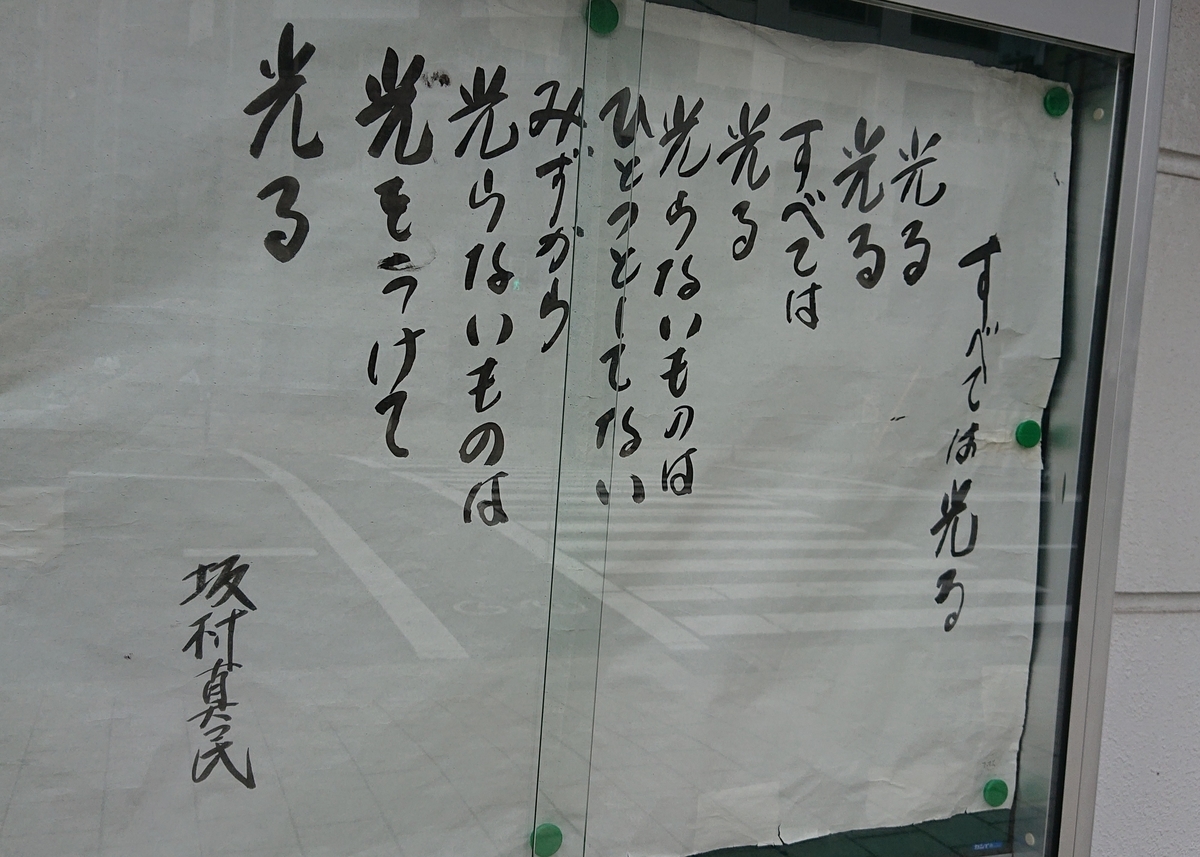 すべては光る
光る
光る
すべては
光る
光らないものは
ひとつとしてない
みずから
光らないものは
光をうけて
光る
坂村真民